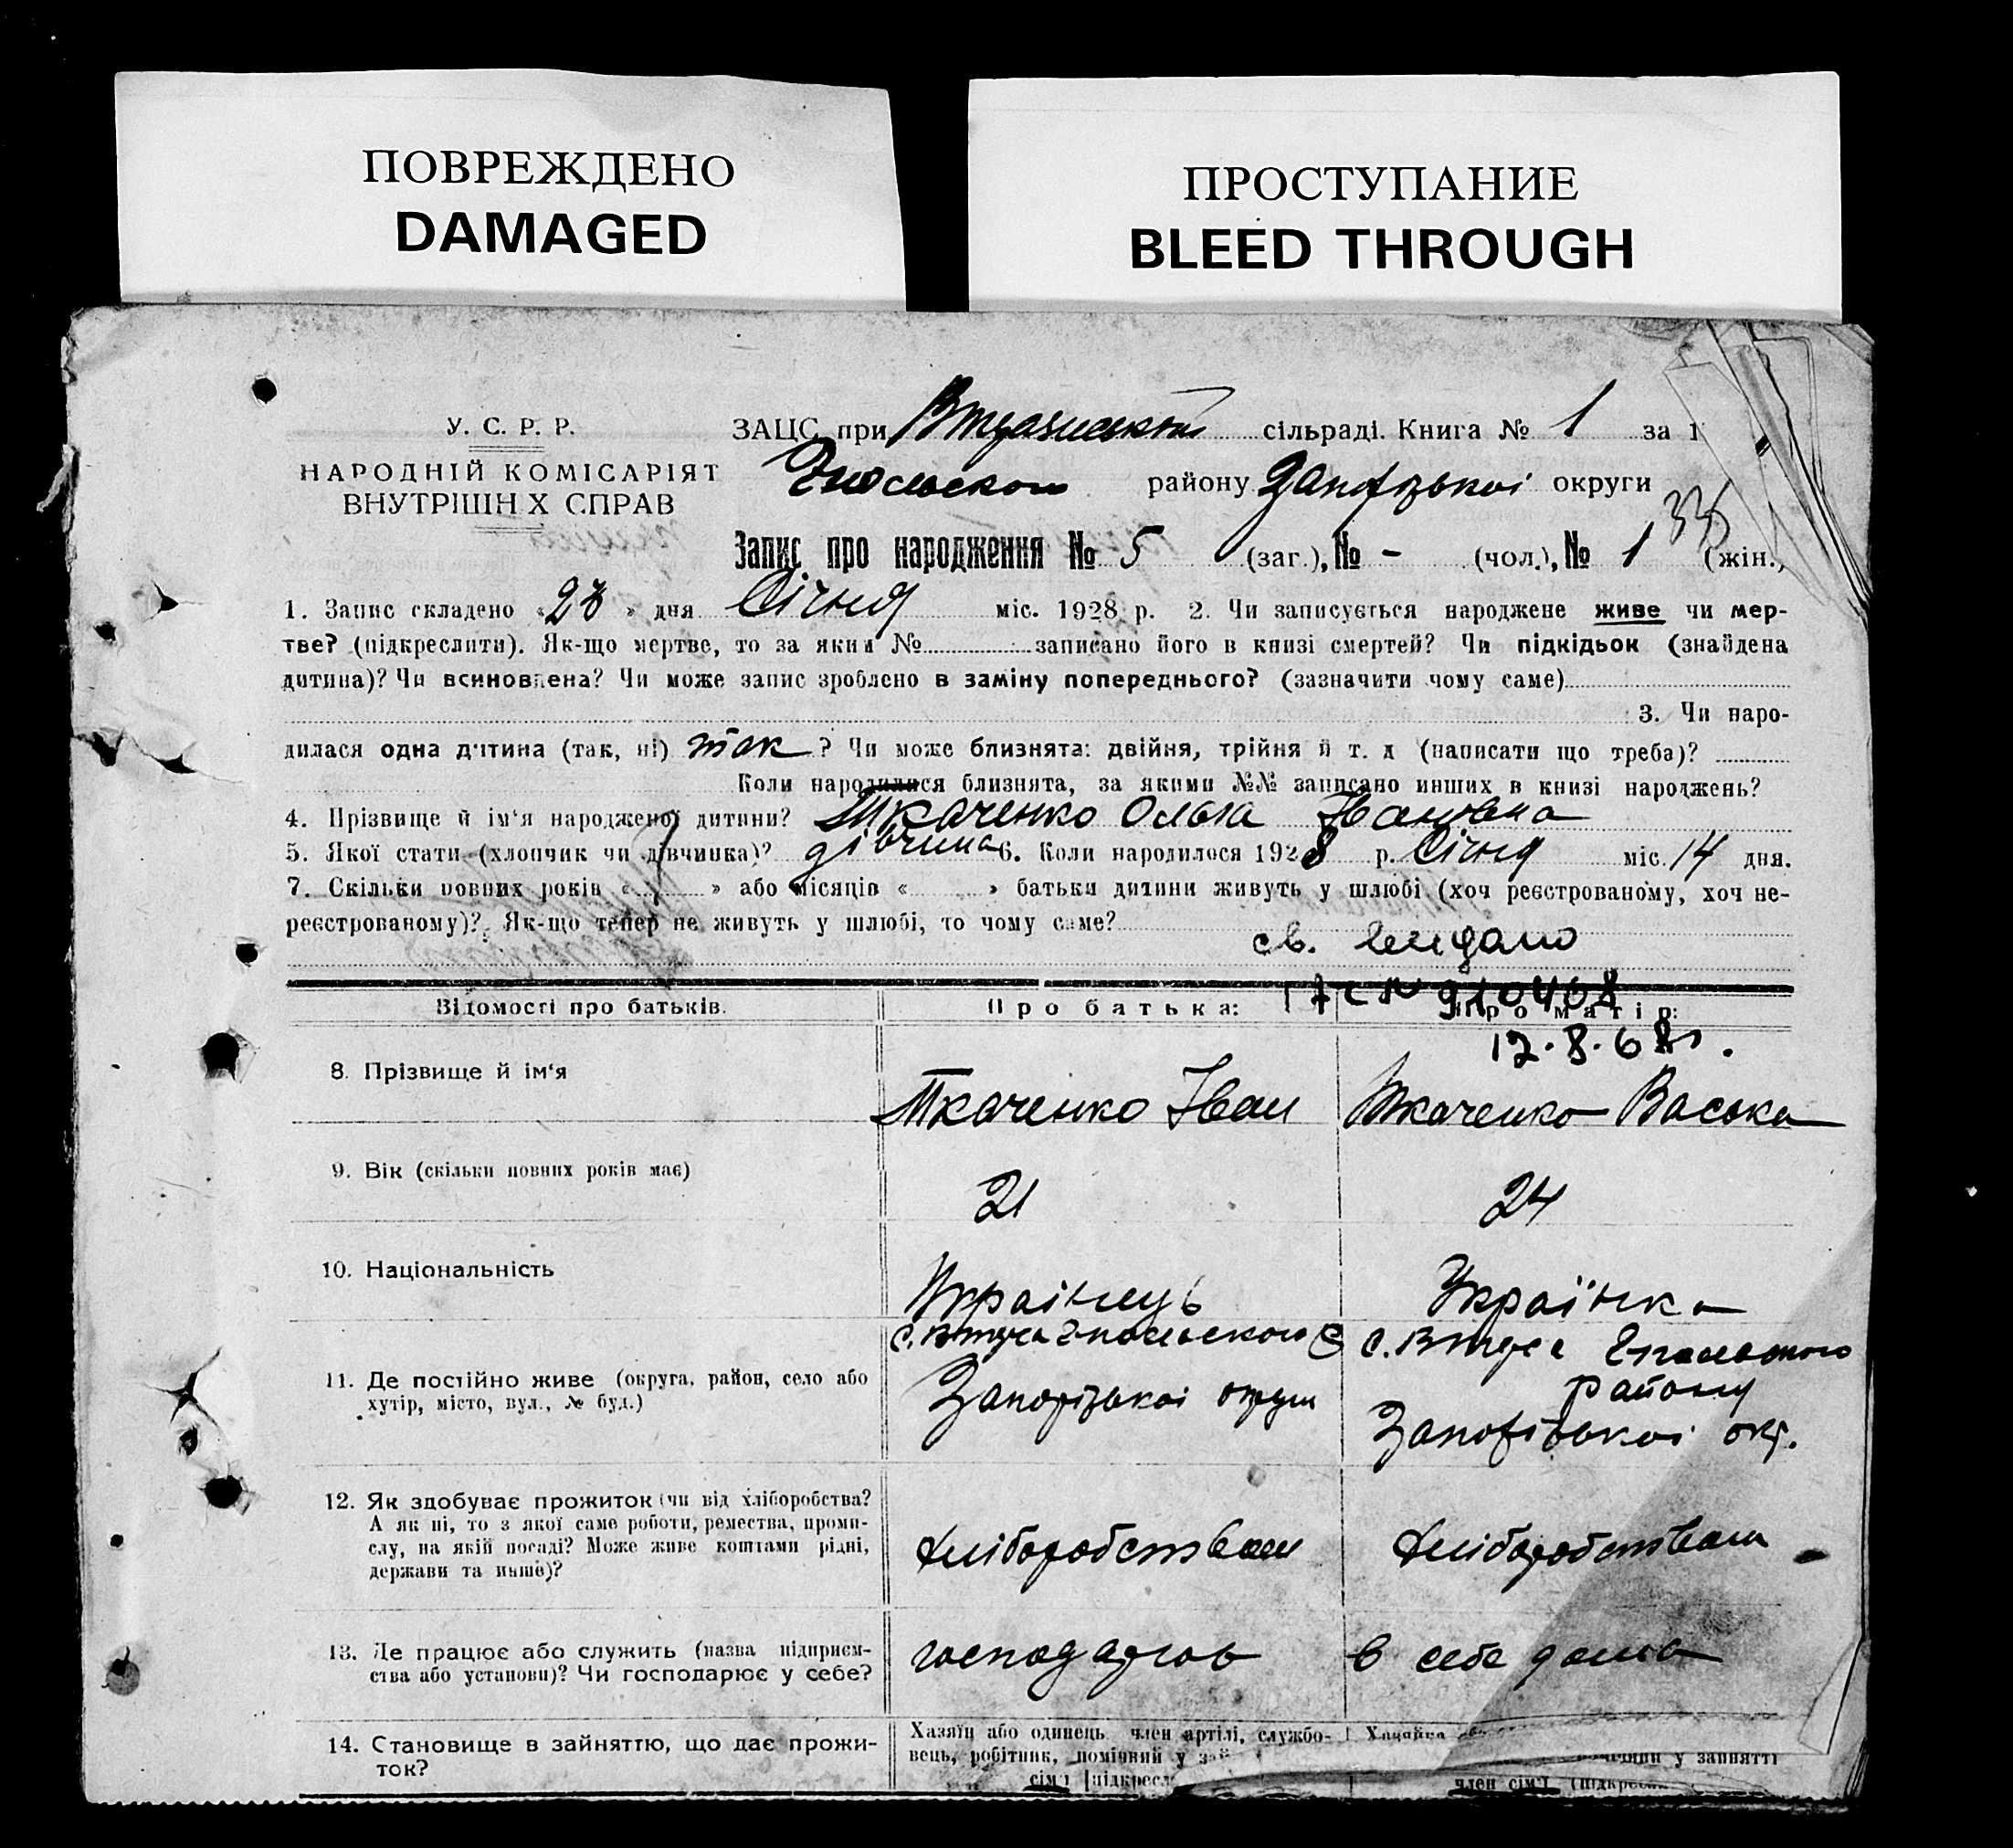 ПОВРЕЖДЕНО
DAMAGED
ПРОСТУПАНИЕ
BLEED THROUGH
У. С. Р. Р.
НАРОДНІЙ КОМІСАРІЯТ
ВНУТРІШН Х СПРАВ
ЗАЦС при сільраді. Книга № 1 за 1
району Запорізької округи
335
Запис про народження № 5 (заг.), № - (чол.), № 1 (жін.)
1. Запис складено «28» дня Січня міс. 1928 р. 2. Чи записується народжене живе чи мер-
тве? (підкреслити). Як-що мертве, то за яким № записано його в книзі смертей? Чи підкідьок (знайдена
дитина)? Чи всиновлена? Чи може запис зроблено в заміну попереднього? (зазначити чому саме)
3. Чи наро-
дилася одна дитина (так, ні) так ? Чи може близнята: двійня, трійня й т. д (написати що треба)?
Коли народилися близнята, за якими №№ записано инших в книзі народжень?
4. Прізвище й ім'я народженої дитини? Ткаченко Ольга Івановна
5. Якої стати (хлопчик чи дівчинка)? дівчина 6. Коли народилося 1928 р. Січня міс. 14 дня.
7. Скільки повних років « » або місяців « » батьки дитини живуть у шлюбі (хоч реєстрованому, хоч не-
реєстрованому)? Як-що тепер не живуть у шлюбі, то чому саме?
св.
910408
12.8.68г.
Відомості про батьків. Про батька: Про матір:
8. Прізвище й ім'я Ткаченко Іван Ткаченко Васька
9. Вік (скільки повних років має) 21 24
10. Національність Українець Українка
11. Де постійно живе (округа, район, село або
хутір, місто, вул., № буд.)
с.
Запорізької округи
с.
району
Запорізької окр.
12. Як здобуває прожиток (чи від хліборобства?
А як ні, то з якої саме роботи, ремества, проми-
слу, на якій посаді? Може живе коштами рідні,
держави та инше)?
хліборобством хліборобством
13. Де працює або служить (назва підприєм-
ства або установи)? Чи господарює у себе?
господарює в себе дома
14. Становище в зайняттю, що дає прожи-
ток?
Хазяїн або одинець член артілі, службо-
вець, робітник, помічний у
сім'ї [підкресл
Хазяйка
у занятті
член сім'ї (підкресли